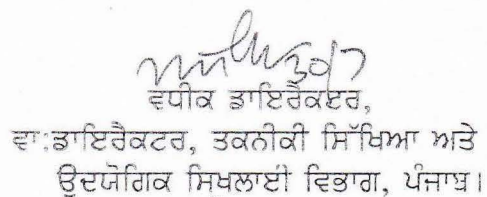 ਵਧੀਕ ਡਾਇਰੈਕਟਰ,
ਵਾ:ਡਾਇਰੈਕਟਰ, ਤਕਨੀਕੀ ਸਿੱਖਿਆ ਅਤੇ
ਉਦਯੋਗਿਕ ਸਿਖਲਾਈ ਵਿਭਾਗ, ਪੰਜਾਬ।